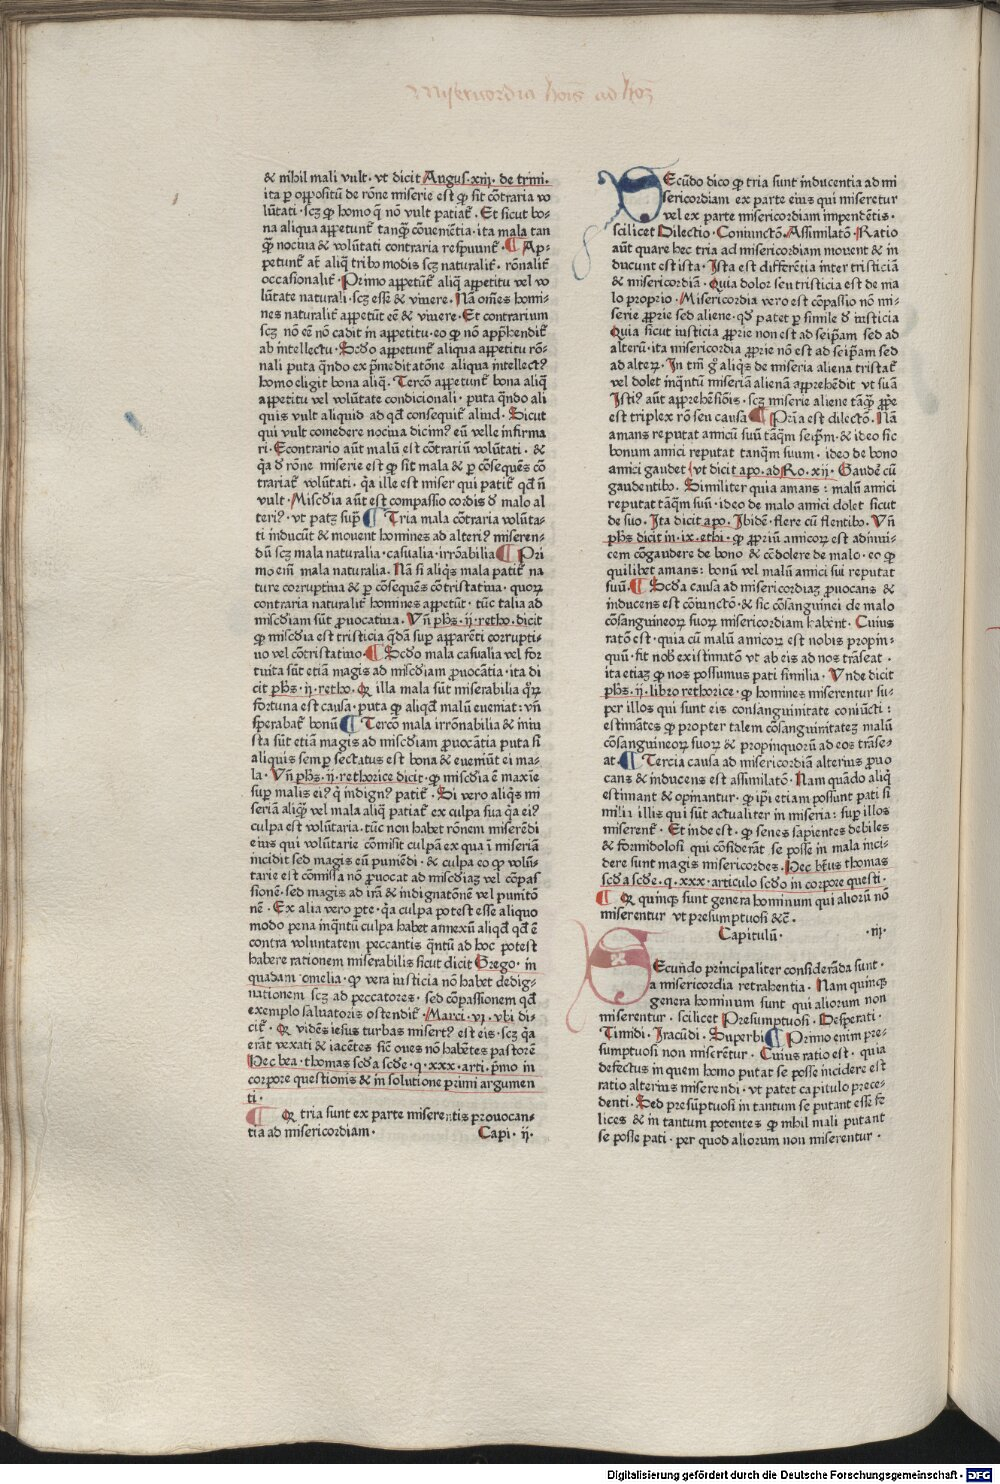 Misericordia hoīs ad hoīz
& nihil mali vult· vt dicit Augus·xiij· de trini·
ita ꝑ oppositū de rōne miserie est ꝙ sit cōtraria vo
lūtati· scꝫ ꝙ homo q̄ nō vult patiat᷑· Et sicut bo-
na aliqua appetunt᷑ tanqꝫ cōuenīētia·ita mala tan
qꝫ nociua & volūtati contraria respuunt᷑· ¶ Ap-
petunt᷑ at̄ aliq̄ tribꝰ modis scꝫ naturalit᷑· rōnalit᷑
occasionalit᷑· Primo appetūt᷑ aliq̄ appetitu vel vo
lūtate naturali· scꝫ esse & viuere· Nā om̄es homi-
nes naturalit᷑ appetūt eē & viuere· Et contrarium
scꝫ nō eē nō cadit in appetitu·eo ꝙ nō app̄hendit᷑
ab intellectu· Scd̄o appetunt᷑ aliqua appetitu rō-
nali puta qn̄do ex p̄meditatōne aliqua intellectꝰ
homo eligit bona aliq̄· Tercō appetunt᷑ bona aliq̄
appetitu vel volūtate condicionali· puta qn̄do ali
quis vult aliquid ad qd̄ consequit᷑ aliud· Sicut
qui vult comedere nociua dicimꝰ eū velle infirma
ri· Econtrario aūt malū est contrariū volūtati· &
q̄a d̄ rōne miserie est ꝙ sit mala & ꝑ cōsequēs cō
trariat᷑ volūtati· q̄a ille est miser qui patit᷑ qd̄ n̄
vult· Misc̄dia aūt est compassio cordis d̄ malo al
teriꝰ· vt patꝫ supͣ ¶ Tria mala cōtraria volūta-
ti inducūt & mouent homines ad alteriꝰ miseren-
dū scꝫ mala naturalia·casualia·irrōabilia ¶ Pri
mo em̄ mala naturalia· Nā si aliqͥs mala patit᷑ na
ture corruptiua & ꝑ cōsequēs cōtristatiua· quoꝝ
contraria naturalit᷑ homines appetūt· tūc talia ad
misc̄diam sūt ꝓuocatiua· Vn̄ ph̄s·ij·retho·dicit
ꝙ misc̄dia est tristicia qd̄ā suꝑ apparēti corrupti-
uo vel cōtristatiuo· ¶ Scd̄o mala casualia vel for
tuita sūt etiā magis ad misc̄diam ꝓuocātia·ita di
cit ph̄s·ij·retho· Qꝛ illa mala sūt miserabilia qͦꝝ
fortuna est causa·puta ꝙ aliqd̄ malū eueniat·vn̄
sperabat᷑ bonū ¶ Tercō mala irrōnabilia & iniu
sta sūt etiā magis ad misc̄diam ꝓuocātia puta si
aliquis semꝑ sectatus est bona & eueniūt ei ma-
la· Vn̄ ph̄s·ij·rethorice dicit·ꝙ misc̄dia ē maxīe
suꝑ malis eiꝰ qͥ indignꝰ patit᷑· Si vero aliqͥs mi
seriā aliqꝫ vel mala aliq̄ patiat᷑ ex culpa sua q̄a eiꝰ
culpa est volūtaria· tūc non habet rōnem miserēdi
eius qui volūtarie cōmisit culpā ex qua ī miseriā
incidit sed magis eū puniēdi·& culpa eo ꝙ volū-
tarie est cōmissa nō ꝓuocat ad misc̄diaꝫ vel cōpas
sionē·sed magis ad irā & indignatōnē vel punitō
nē· Ex alia vero ꝑte·q̄a culpa potest esse aliquo
modo pena inqͣntū culpa habet annexū aliqd̄ qd̄ ē
contra voluntatem peccantis qͣntū ad hoc potest
habere rationem miserabilis sicut dicit Grego· in
quadam omelia·ꝙ vera iusticia nō habet dedig-
nationem scꝫ ad peccatores· sed cōpassionem qd̄
exemplo saluatoris ostendit᷑· Marci·vj·vbi di-
cit᷑· Qꝛ vidēs iesus turbas misertꝰ est eis·scꝫ q̄a
erāt vexati & iacētes sic̄ oues nō habētes pastorē
Hec bea·thomas scd̄a scd̄e·q·xxx·arti·p̄mo in
corpore questionis & in solutione primi argumen
ti·
¶ Qꝛ tria sunt ex parte miserentis prouocan-
tia ad misericordiam· Capi·ij·
SEcūdo dico ꝙ tria sunt inducentia ad mi
sericordiam ex parte eius qui miseretur
vel ex parte misericordiam impendētis·
scilicet Dilectio·Coniunctō·Assimilatō· Ratio
aūt quare hec tria ad misericordiam mouent & in
ducunt est ista· Ista est differētia inter tristiciā
& misericordiā· Quia dolor seu tristicia est de ma
lo proprio· Misericordia vero est cōpassio nō mi-
serie ꝓprie sed aliene·qd̄ patet ꝑ simile d̄ iusticia
Quia sicut iusticia ꝓprie non est ad seip̄am sed ad
alterū·ita misericordia ꝓprie nō est ad seip̄am sed
ad alteꝝ· In tm̄ gͦ aliqͥs de miseria aliena tristat᷑
vel dolet inqͣntū miseriā alienā apprehēdit vt suā
Istiꝰ aūt apprehēsiōis·scꝫ miserie aliene tāqꝫ ꝓprie
est triplex rō seu causa ¶ Pͥma est dilectō· Nā
amans reputat amicū suū tāqͣm seip̄m·& ideo sic
bonum amici reputat tanqͣm suum·ideo de bono
amici gaudet vt dicit apo·ad Ro·xij· Gaudē cū
gaudentibꝰ· Similiter quia amans: malū amici
reputat tāqͣm suū·ideo de malo amici dolet sicut
de suo· Ita dicit apo· Ibidē·flere cū flentibꝰ· Vn̄
ph̄s dicit in·ix·ethi·ꝙ ꝓpriū amicoꝝ est adinui-
cem cōgaudere de bono & cōdolere de malo·eo ꝙ
quilibet amans: bonū vel malū amici sui reputat
suū· ¶ Scd̄a causa ad misericordiaꝫ ꝓuocans &
inducens est cōiunctō·& sic cōsanguinei de malo
cōsanguineoꝝ suoꝝ misericordiam habent· Cuius
ratō est·quia cū malū amicoꝝ est nobis propin-
quū·fit nobꝭ existimatō vt ab eis ad nos trāseat·
ita etiaꝫ ꝙ nos possumus pati similia· Vnde dicit
ph̄s·ij·libro rethorice·ꝙ homines miserentur su-
per illos qui sunt eis consanguinitate coniūcti:
estimātes ꝙ propter talem cōsanguinitateꝫ malū
cōsanguineoꝝ suoꝝ & propinquorū ad eos trāse-
at· ¶ Tercia causa ad misericordiā alterius ꝓuo
cans & inducens est assimilatō· Nam quādo aliq̄
estimant & opinantur·ꝙ ip̄i etiam possunt pati si
milia illis qui sūt actualiter in miseria: suꝑ illos
miserent᷑· Et inde est·ꝙ senes sapientes debiles
& formidolosi qui cōsiderāt se posse in mala inci-
dere sunt magis misericordes· Hec btūs thomas
scd̄a scd̄e·q·xxx·articulo scd̄o in corpore questi·
¶ Qꝛ quinqꝫ sunt genera hominum qui alioꝝ nō
miserentur vt presumptuosi &c̄·
Capitulū· ·iij·
SEcundo principaliter considerāda sunt·
a misericordia retrahentia· Nam quinqꝫ
genera hominum sunt qui aliorum non
miserentur· scilicet Presumptuosi· Desperati·
Timidi· Iracūdi· Superbi ¶ Primo enim pre-
sumptuosi non miserētur· Cuius ratio est· quia
defectus in quem homo putat se posse incidere est
ratio alterius miserendi· vt patet capitulo prece-
denti· Sed presūptuosi in tantum se putant esse fe
lices & in tantum potentes ꝙ nihil mali putant
se posse pati· per quod aliorum non miserentur·
Digitalisierung gefördert durch die Deutsche Forschungsgemeinschaft - DFG